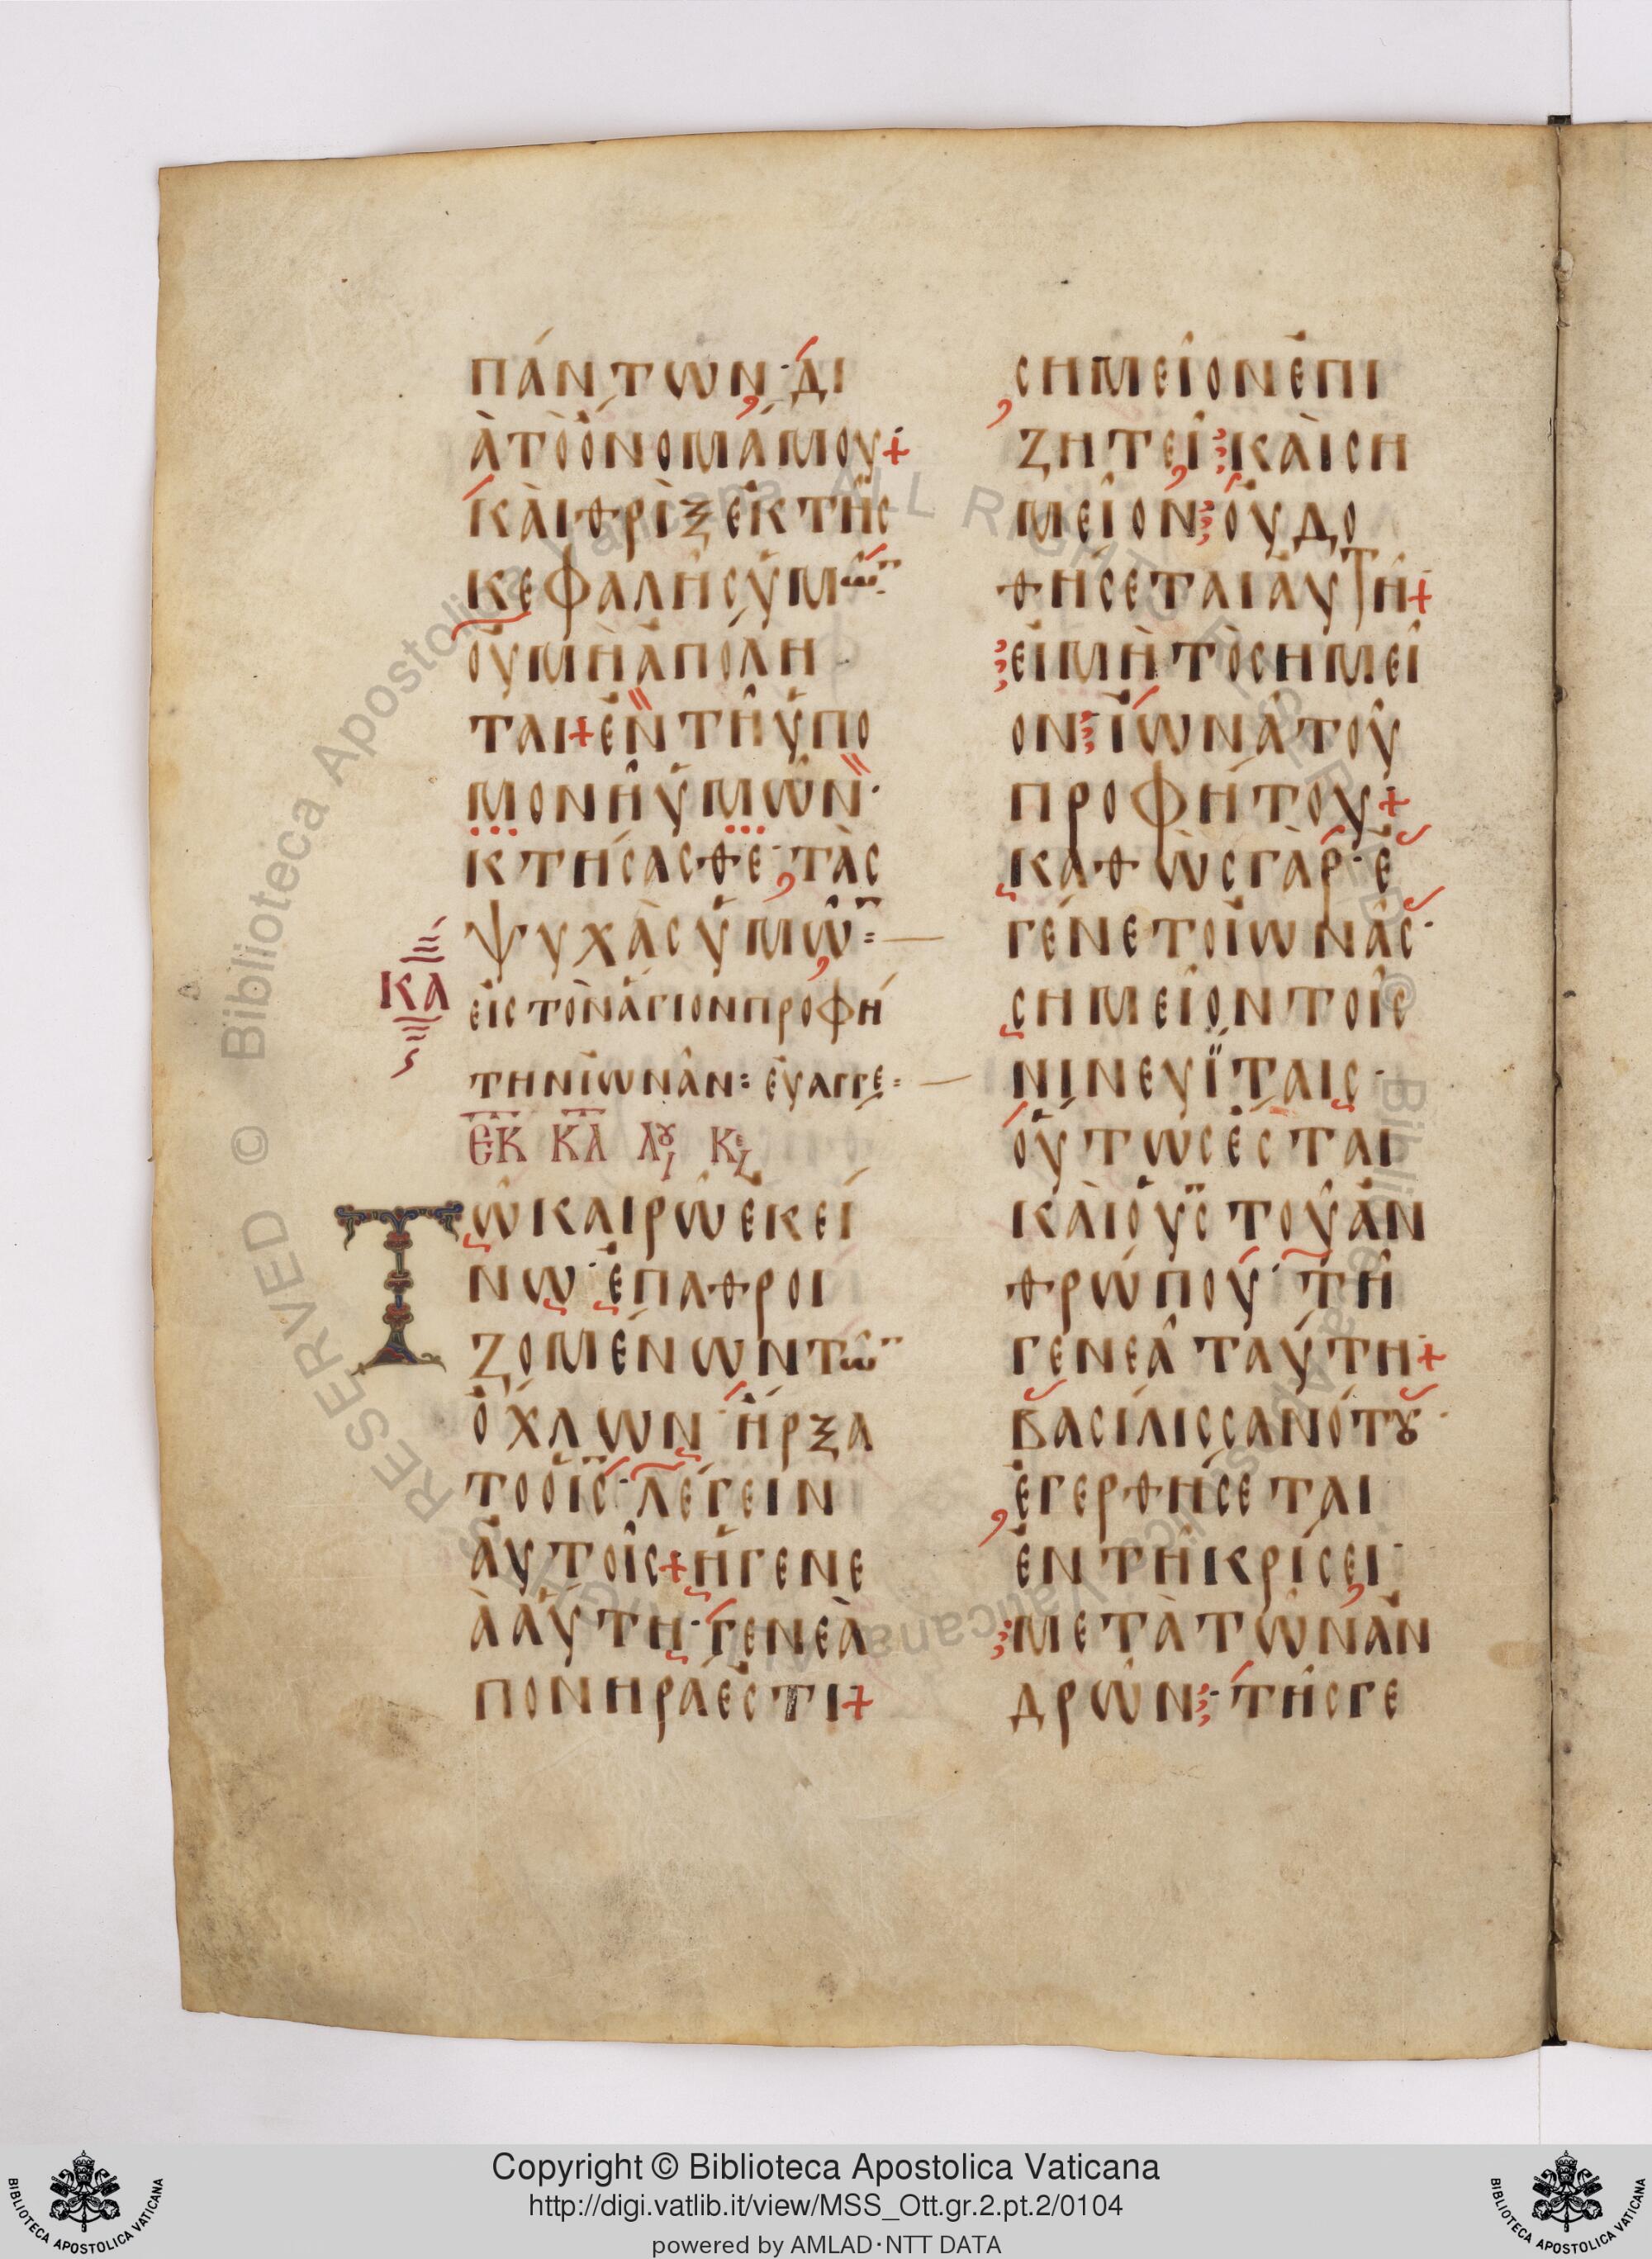 ΠΆΝΤΩΝ· ΔΙ
ᾺΤῸὌΝΟΜΆΜΟΥ+
ΚΑῚΘΡῚΞἘΚΤΗ͂Σ
ΚΕΦΑΛΗ͂ΣὙΜΩ͂
ΟΥ̓ΜῊἈΠΌΛΗ
ΤΑΙ+ἘΝΤΗ͂ὙΠΟ
ΜΟΝΗ͂ὙΜΩ͂Ν·
ΚΤΉΣΑΣΘΕ· ΤᾺΣ
ΨΥΧᾺΣὙΜΩ͂=
ΚΑ
ΕἸΣΤῸΝἍΓΙΟΝΠΡΟΦΉ
ΤΗΝἸΩΝΑ͂Ν: ΕΥ̓ΑΓΓΕ=
ΕΚ ΚΛ ΛȢ ΚΕ
ΤΩ͂ΚΑΙΡΩ͂ἘΚΕΊ
ΝΩ· ἘΠΑΘΡΟΙ
ΖΟΜΈΝΩΝΤΩ͂
ὌΧΛΩΝ ἬΡΞΑ
ΤΟὉΙΣ· ΛΈΓΕΙΝ
ΑΥ̓ΤΟΙ͂Σ+ἩΓΕΝΕ
ᾺΑὝΤΗ· ΓΕΝΕᾺ
ΠΟΝΗΡΆἘΣΤΙ+
ΣΗΜΕΙ͂ΟΝἘΠΙ
ΖΗΤΕΙ͂ ΚΑῚΣΗ
ΜΕΙ͂ΟΝ ΟΥ̓ΔΟ
ΘΉΣΕΤΑΙΑΥ̓ΤΗ͂+
ΕἸΜῊΤῸΣΗΜΕΙ͂
ΟΝ· ἸΩΝΑ͂ΤΟΥ͂
ΠΡΟΦΉΤΟΥ+
ΚΑΘῺΣΓᾺΡ· Ἐ
ΓΈΝΕΤΟἸΩΝΑ͂Σ·
ΣΗΜΕΙ͂ΟΝΤΟΙ͂Σ
ΝΙΝΕΥΪ́ΤΑΙΣ·
ΟὝΤΩΣἘΣΤΑΙ
ΚΑῚΟΥΣΤΟΥ͂ἈΝ
ΘΡΏΠΟΥ· ΤΗ͂
ΓΕΝΕΑ͂ΤΑΎΤΗ+
ΒΑΣΊΛΙΣΣΑΝΌΤȢ·
ἘΓΕΡΘΉΣΕΤΑΙ
ἘΝΤΗ͂ΚΡΊΣΕΙ·
ΜΕΤᾺΤΩ͂ΝἈΝ
ΔΡΩ͂Ν· ΤΗ͂ΣΓΕ
Copyright © Biblioteca Apostolica Vaticana
http://digi.vatlib.it/view/MSS_Ott.gr.2.pt.2/0104
powered by AMLAD·NTT DATA
BIBLIOTECA APOSTOLICA VATICANA
BIBLIOTECA APOSTOLICA VATICANA